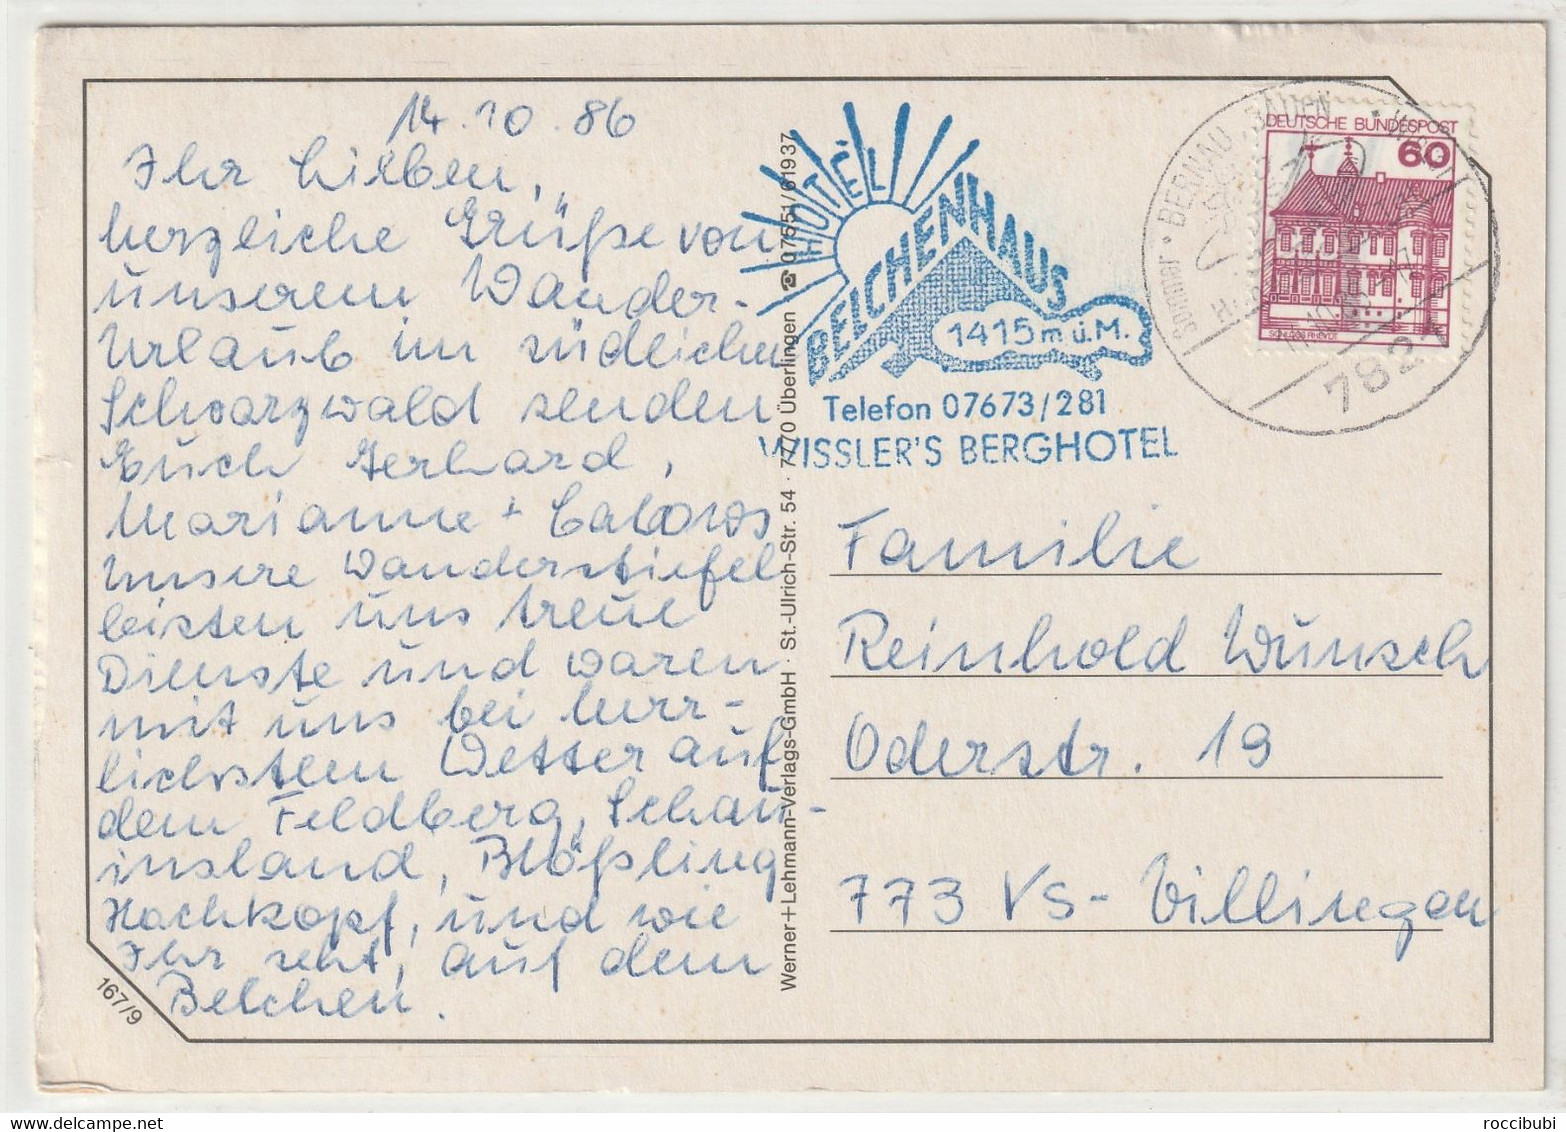 14.10.86
Ihr Lieben,
herzliche Grüße von
unserem Wander-
Urlaub im südlichen
Schwarzwald senden
Euch Gerhard,
Marianne +
Unsere Wanderstiefel
leisten uns treue
Dienste und waren
mit uns bei herr-
lichstem Wetter auf
dem Feldberg, Schau-
insland, Blößling
Hochkopf, und wie
Ihr seht, auf dem
Belchen.
167/9
Werner+Lehmann-Verlags-GmbH · St.-Ulrich-Str. 54 · 7770 Überlingen ☎ 07551/61937
HOTEL
BELCHENHAUS
1415 m ü.M.
Telefon 07673/281
WISSLER'S BERGHOTEL
DEUTSCHE BUNDESPOST
60
SCHLOSS RHEYDT
Sommer · BERNAU, BADEN
782
Familie
Reinhold Wunsch
Oderstr. 19
773 VS-Villingen
roccibubi